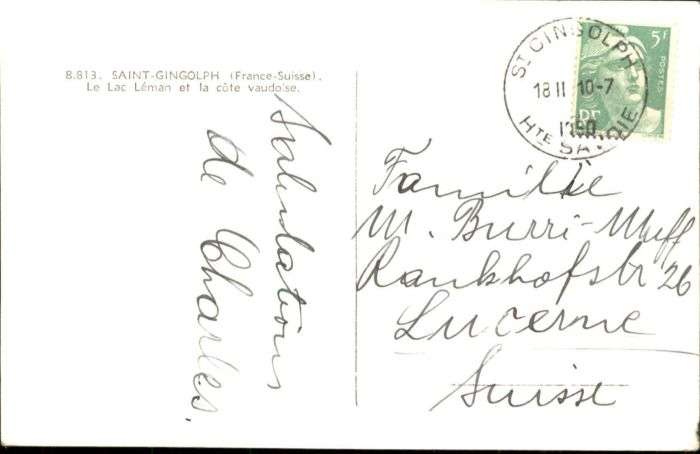 8.813. SAINT-GINGOLPH (France-Suisse).
Le Lac Léman et la côte vaudoise.
Salutations
de Charles.
ST GINGOLPH
18 II 10-7
1950
HTE SAVOIE
5F
POSTES
RF
Familie
M. Burri-Muff
Rankhofstr 26
Lucerne
Suisse